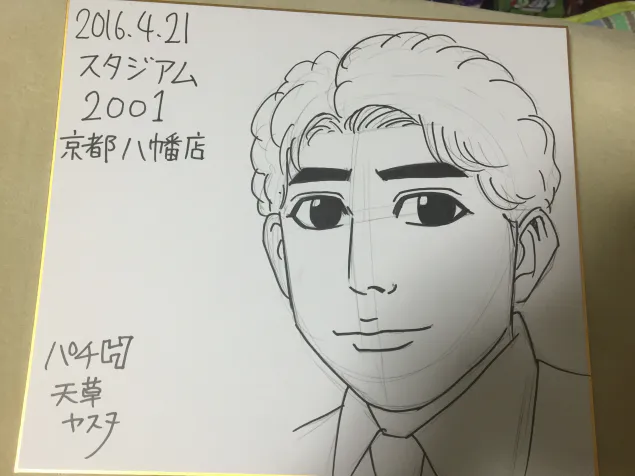 2016.4.21
スタジアム
2001
京都八幡店
パチ
天草
ヤスタ